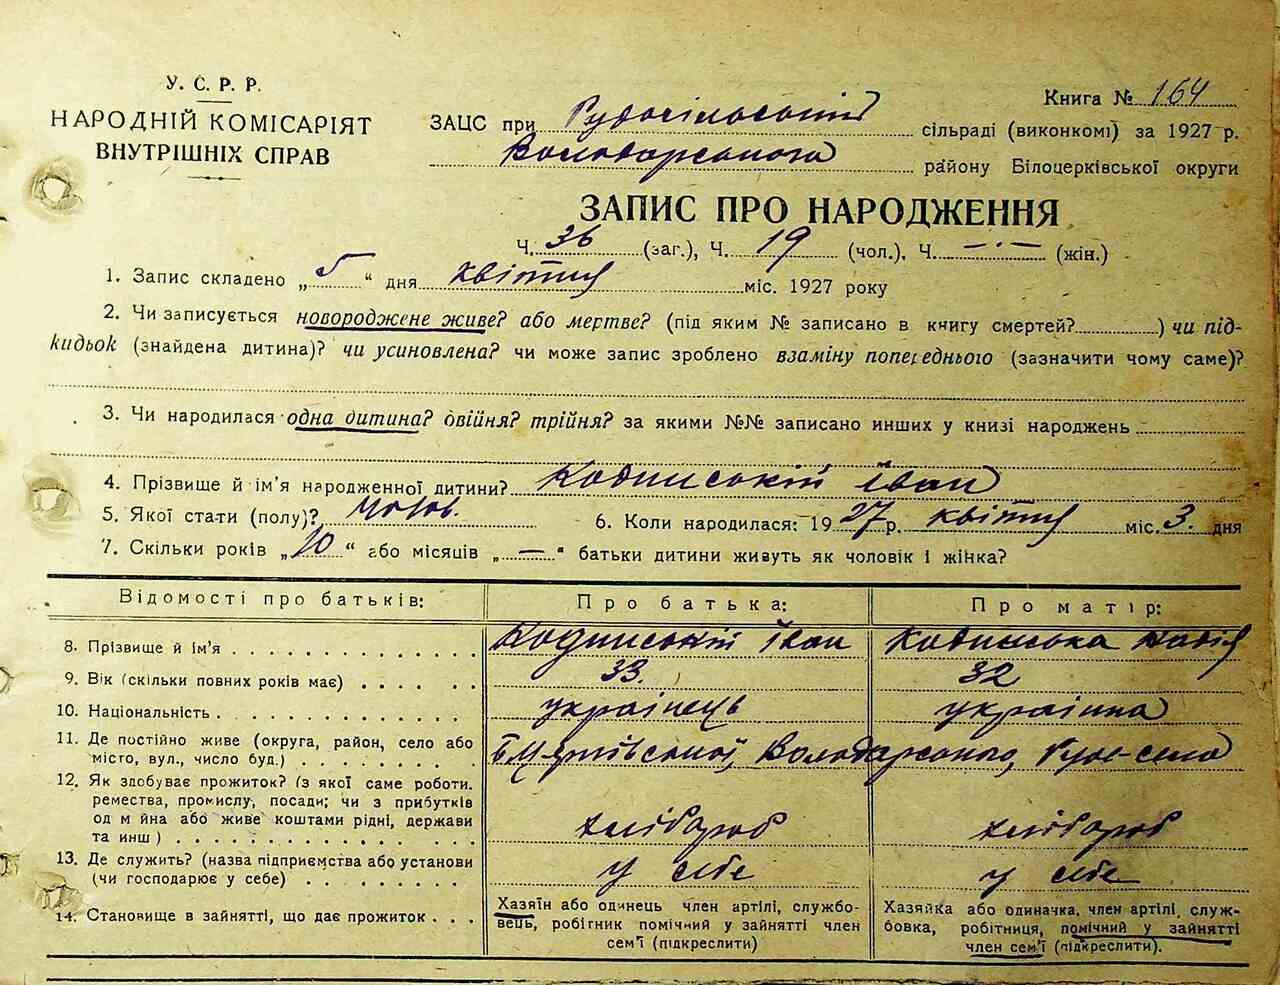 У. С. Р. Р.
НАРОДНІЙ КОМІСАРІЯТ
ВНУТРІШНІХ СПРАВ
Книга № 164
ЗАЦС при Рудосільській сільраді (виконкомі) за 1927 р.
Володарського району Білоцерківської округи
ЗАПИС ПРО НАРОДЖЕННЯ
Ч. 36 (заг.), Ч. 19 (чол.), Ч. — (жін.)
1. Запис складено „5“ дня квітня міс. 1927 року
2. Чи записується новороджене живе? або мертве? (під яким № записано в книгу смертей? ) чи під-
кидьок (знайдена дитина)? чи усиновлена? чи може запис зроблено взаміну попереднього (зазначити чому саме)?
3. Чи народилася одна дитина? двійня? трійня? за якими №№ записано инших у книзі народжень
4. Прізвище й ім'я народженної дитини? Кодинській Іван
5. Якої стати (полу)? чолов. 6. Коли народилася: 1927 р. квітня міс. 3 дня
7. Скільки років „10“ або місяців „—“ батьки дитини живуть як чоловік і жінка?
Відомості про батьків: Про батька: Про матір:
8. Прізвище й ім'я Кодинській Іван Кодинська
9. Вік (скільки повних років має) 33. 32
10. Національність українець українка
11. Де постійно живе (округа, район, село або
місто, вул., число буд.) Володарського, Руде-село
12. Як здобуває прожиток? (з якої саме роботи.
ремества, промислу, посади; чи з прибутків
од м йна або живе коштами рідні, держави
та инш) хлібороб хлібороб
13. Де служить? (назва підприємства або установи
(чи господарює у себе) у себе у себе
14. Становище в зайнятті, що дає прожиток
Хазяїн або одинець член артілі, службо-
вець, робітник помічний у зайнятті член
сем'ї (підкреслити)
Хазяйка або одиначка, член артілі, служ-
бовка, робітниця, помічний у зайнятті
член сем'ї (підкреслити).